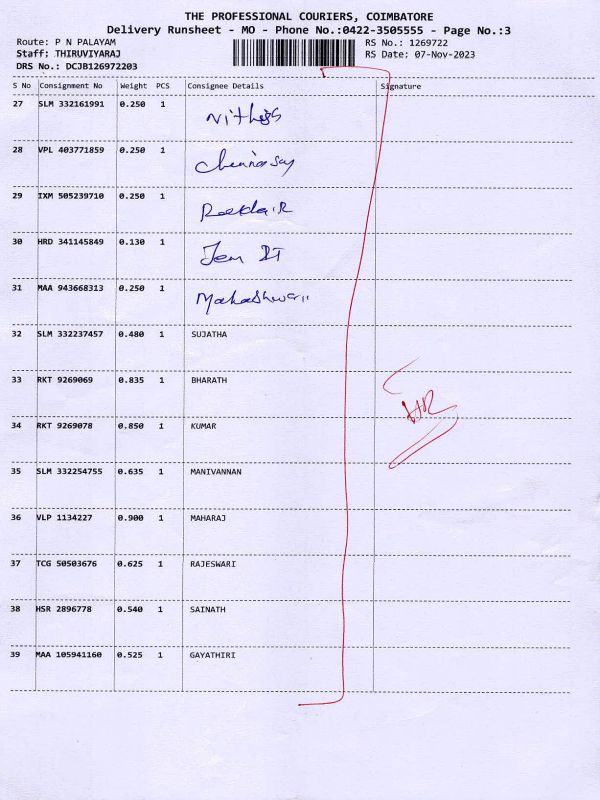 THE PROFESSIONAL COURIERS, COIMBATORE
Delivery Runsheet - MO - Phone No.:0422-3505555 - Page No.:3
Route: P N PALAYAM RS No.: 1269722
Staff: THIRUVIYARAJ RS Date: 07-Nov-2023
DRS No.: DCJB126972203
S No Consignment No Weight PCS Consignee Details Signature
27 SLM 332161991 0.250 1
28 VPL 403771859 0.250 1
29 IXM 505239710 0.250 1
30 HRD 341145849 0.130 1 Jem
31 MAA 943668313 0.250 1
32 SLM 332237457 0.480 1 SUJATHA
33 RKT 9269069 0.835 1 BHARATH
34 RKT 9269078 0.850 1 KUMAR
HR
35 SLM 332254755 0.635 1 MANIVANNAN
36 VLP 1134227 0.900 1 MAHARAJ
37 TCG 50503676 0.625 1 RAJESWARI
38 HSR 2896778 0.540 1 SAINATH
39 MAA 105941160 0.525 1 GAYATHIRI